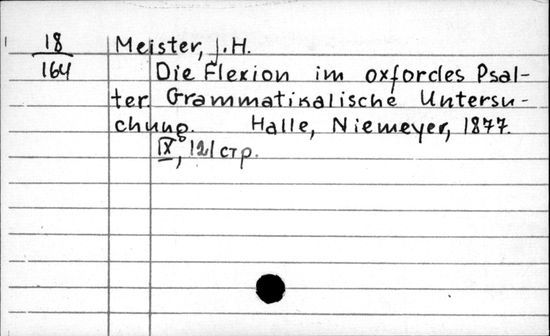 18
164
Meister, J.H.
Die Flexion im oxfordes Psal-
ter. Grammatikalische Untersu-
chung. Halle, Niemeyer, 1877.
IX, 121 стр.